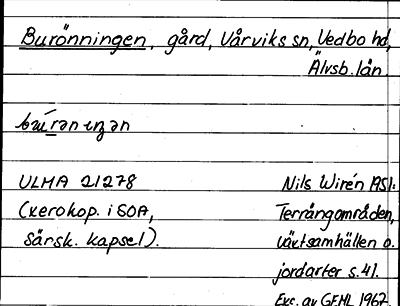 Burönningen, gård, Vårviks sn, Vedbo hd,
Älvsb. län.
ULMA 21278
(xerokop. i SOA,
Särsk. kapsel).
Nils Wirén 1951:
Terrängområden,
växtsamhällen o.
jordarter s. 41.
Exc. av GEHL 1967.